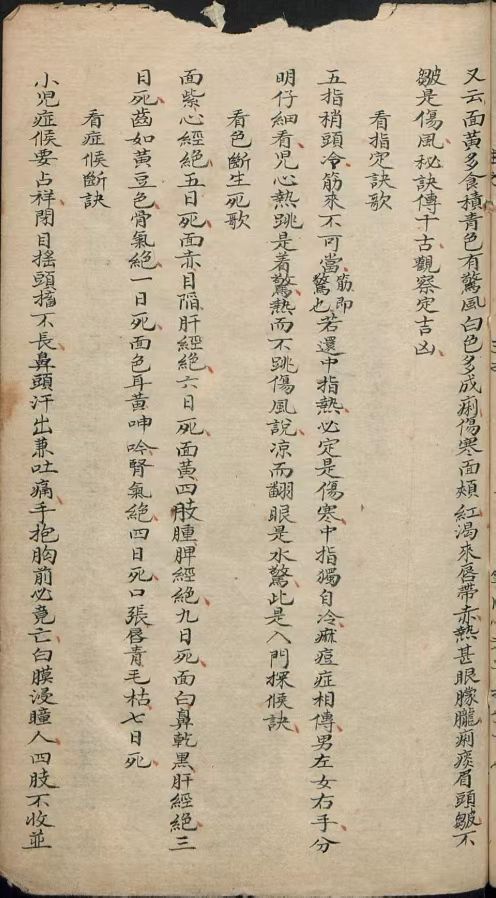 又云面黃多食積青色有驚風白色多成痢傷寒面頰紅渴來唇帶赤熱甚眼朦朧痢痰眉頭皺不
皺是傷風秘訣傳千古觀察定吉凶
看指定訣歌
五指稍頭冷筋來不可當筋即驚也若還中指熱必定是傷寒中指獨自冷麻痘症相傳男左女右手分
明仔細看兒心熱跳是着驚熱而不跳傷風說凉而翻眼是水驚此是入門探候訣
看色斷生死歌
面紫心經絕五日死面赤目陷肝經絕六日死面黃四肢腫脾經絕九日死面白鼻乾黑肝經絕三
日死齒如黃豆色骨氣絕一日死面色耳黃呻吟腎氣絕四日死口張唇青毛枯七日死
看症候斷訣
小児症候要占祥閉目搖頭搐不長鼻頭汗出兼吐痛手抱胸前必竟亡白膜浸瞳人四肢不收並